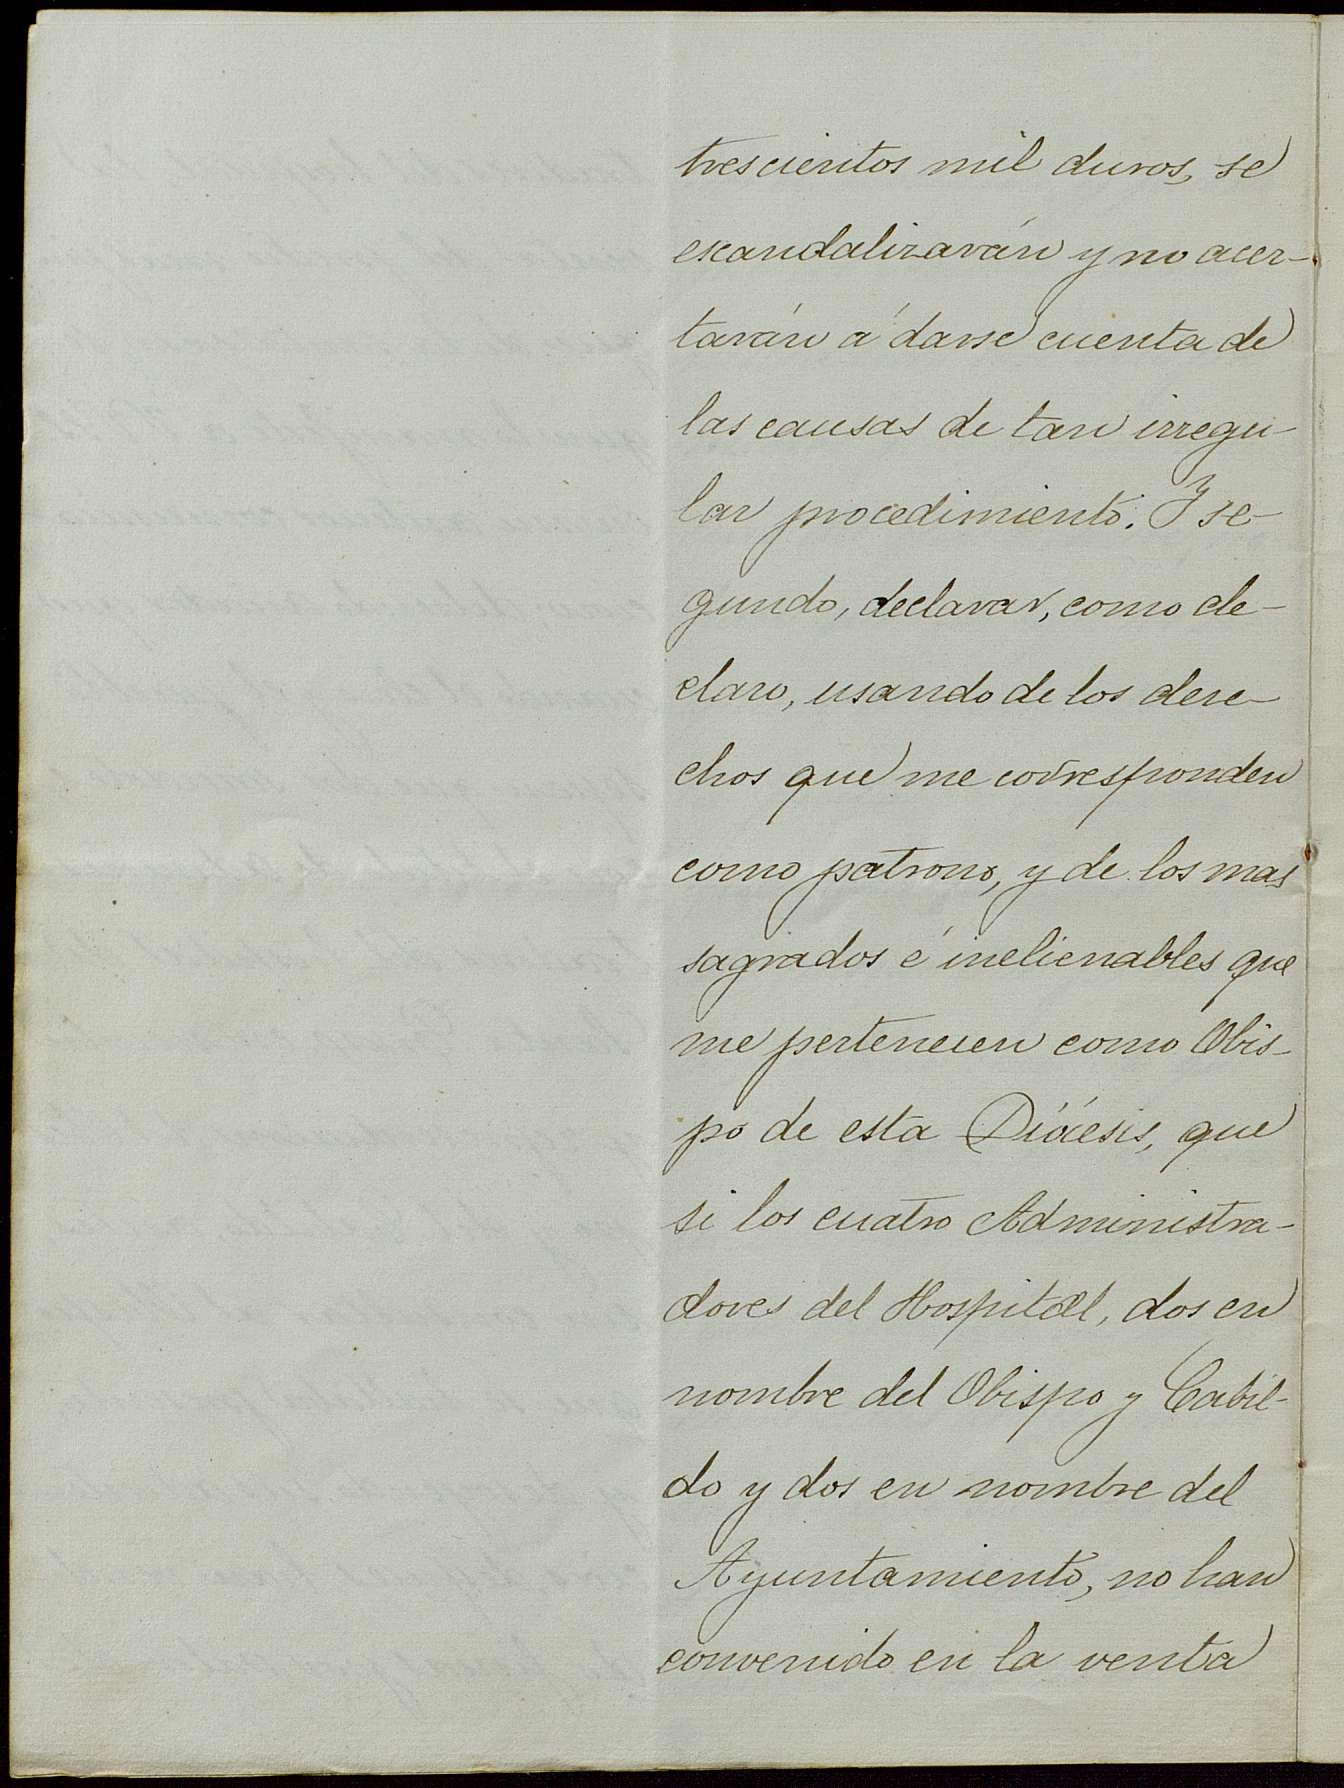 trescientos mil duros, se
escandalizarán y no acer-
tarán á darse cuenta de
las causas de tan irregu-
lar procedimiento. Y se-
gundo, declarar, como de-
claro, usando de los dere-
chos que me corresponden
como patrono, y de los mas
sagrados é inelienables que
me pertenecen como Obis-
po de esta Diócesis, que
si los cuatro Administra-
dores del Hospital, dos en
nombre del Obispo y Cabil-
do y dos en nombre del
Ayuntamiento, no han
convenido en la venta